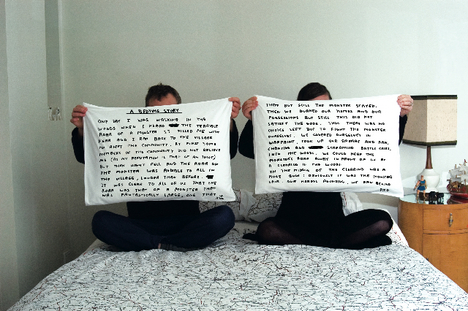 A BEDTIME STORY
ONE DAY I WAS WALKING IN THE
WOODS WHEN I HEARD THE TERRIBLE
ROAR OF A MONSTER. IT FILLED ME WITH
FEAR AND I RAN BACK TO THE VILLAGE
TO WARN THE COMMUNITY. AT FIRST SOME
MEMBERS OF THE COMMUNITY DID NOT BELIEVE
ME (AS MY REPUTATION IS THAT OF AN
BUT THEN THE ROAR OF
THE MONSTER WAS AUDIBLE TO ALL IN
THE VILLAGE, LOUDER THAN BEFORE.
IT WAS CLEAR TO ALL OF US THAT THE
ROAR WAS THAT OF A MONSTER THAT
WAS PARTICULARLY LARGE, AND THAT
THEN BUT STILL THE MONSTER STAYED.
THEN WE BURNED OUR HOMES AND OUR
POSSESSIONS BUT STILL THIS DID NOT
SATISFY THE NOISE. THEN THERE WAS NO
CHOICE LEFT BUT TO FIGHT THE MONSTER
OURSELVES. WE COVERED OURSELVES IN
WARPAINT, TOOK UP OUR SPEARS AND RAN,
CHANTING AND SCREAMING BATTLE CRIES,
INTO THE WOODS. WE COULD HEAR THE
MONSTER'S ROAR
A CLEARING IN THE WOODS
IN THE MIDDLE OF THE CLEARING WAS A